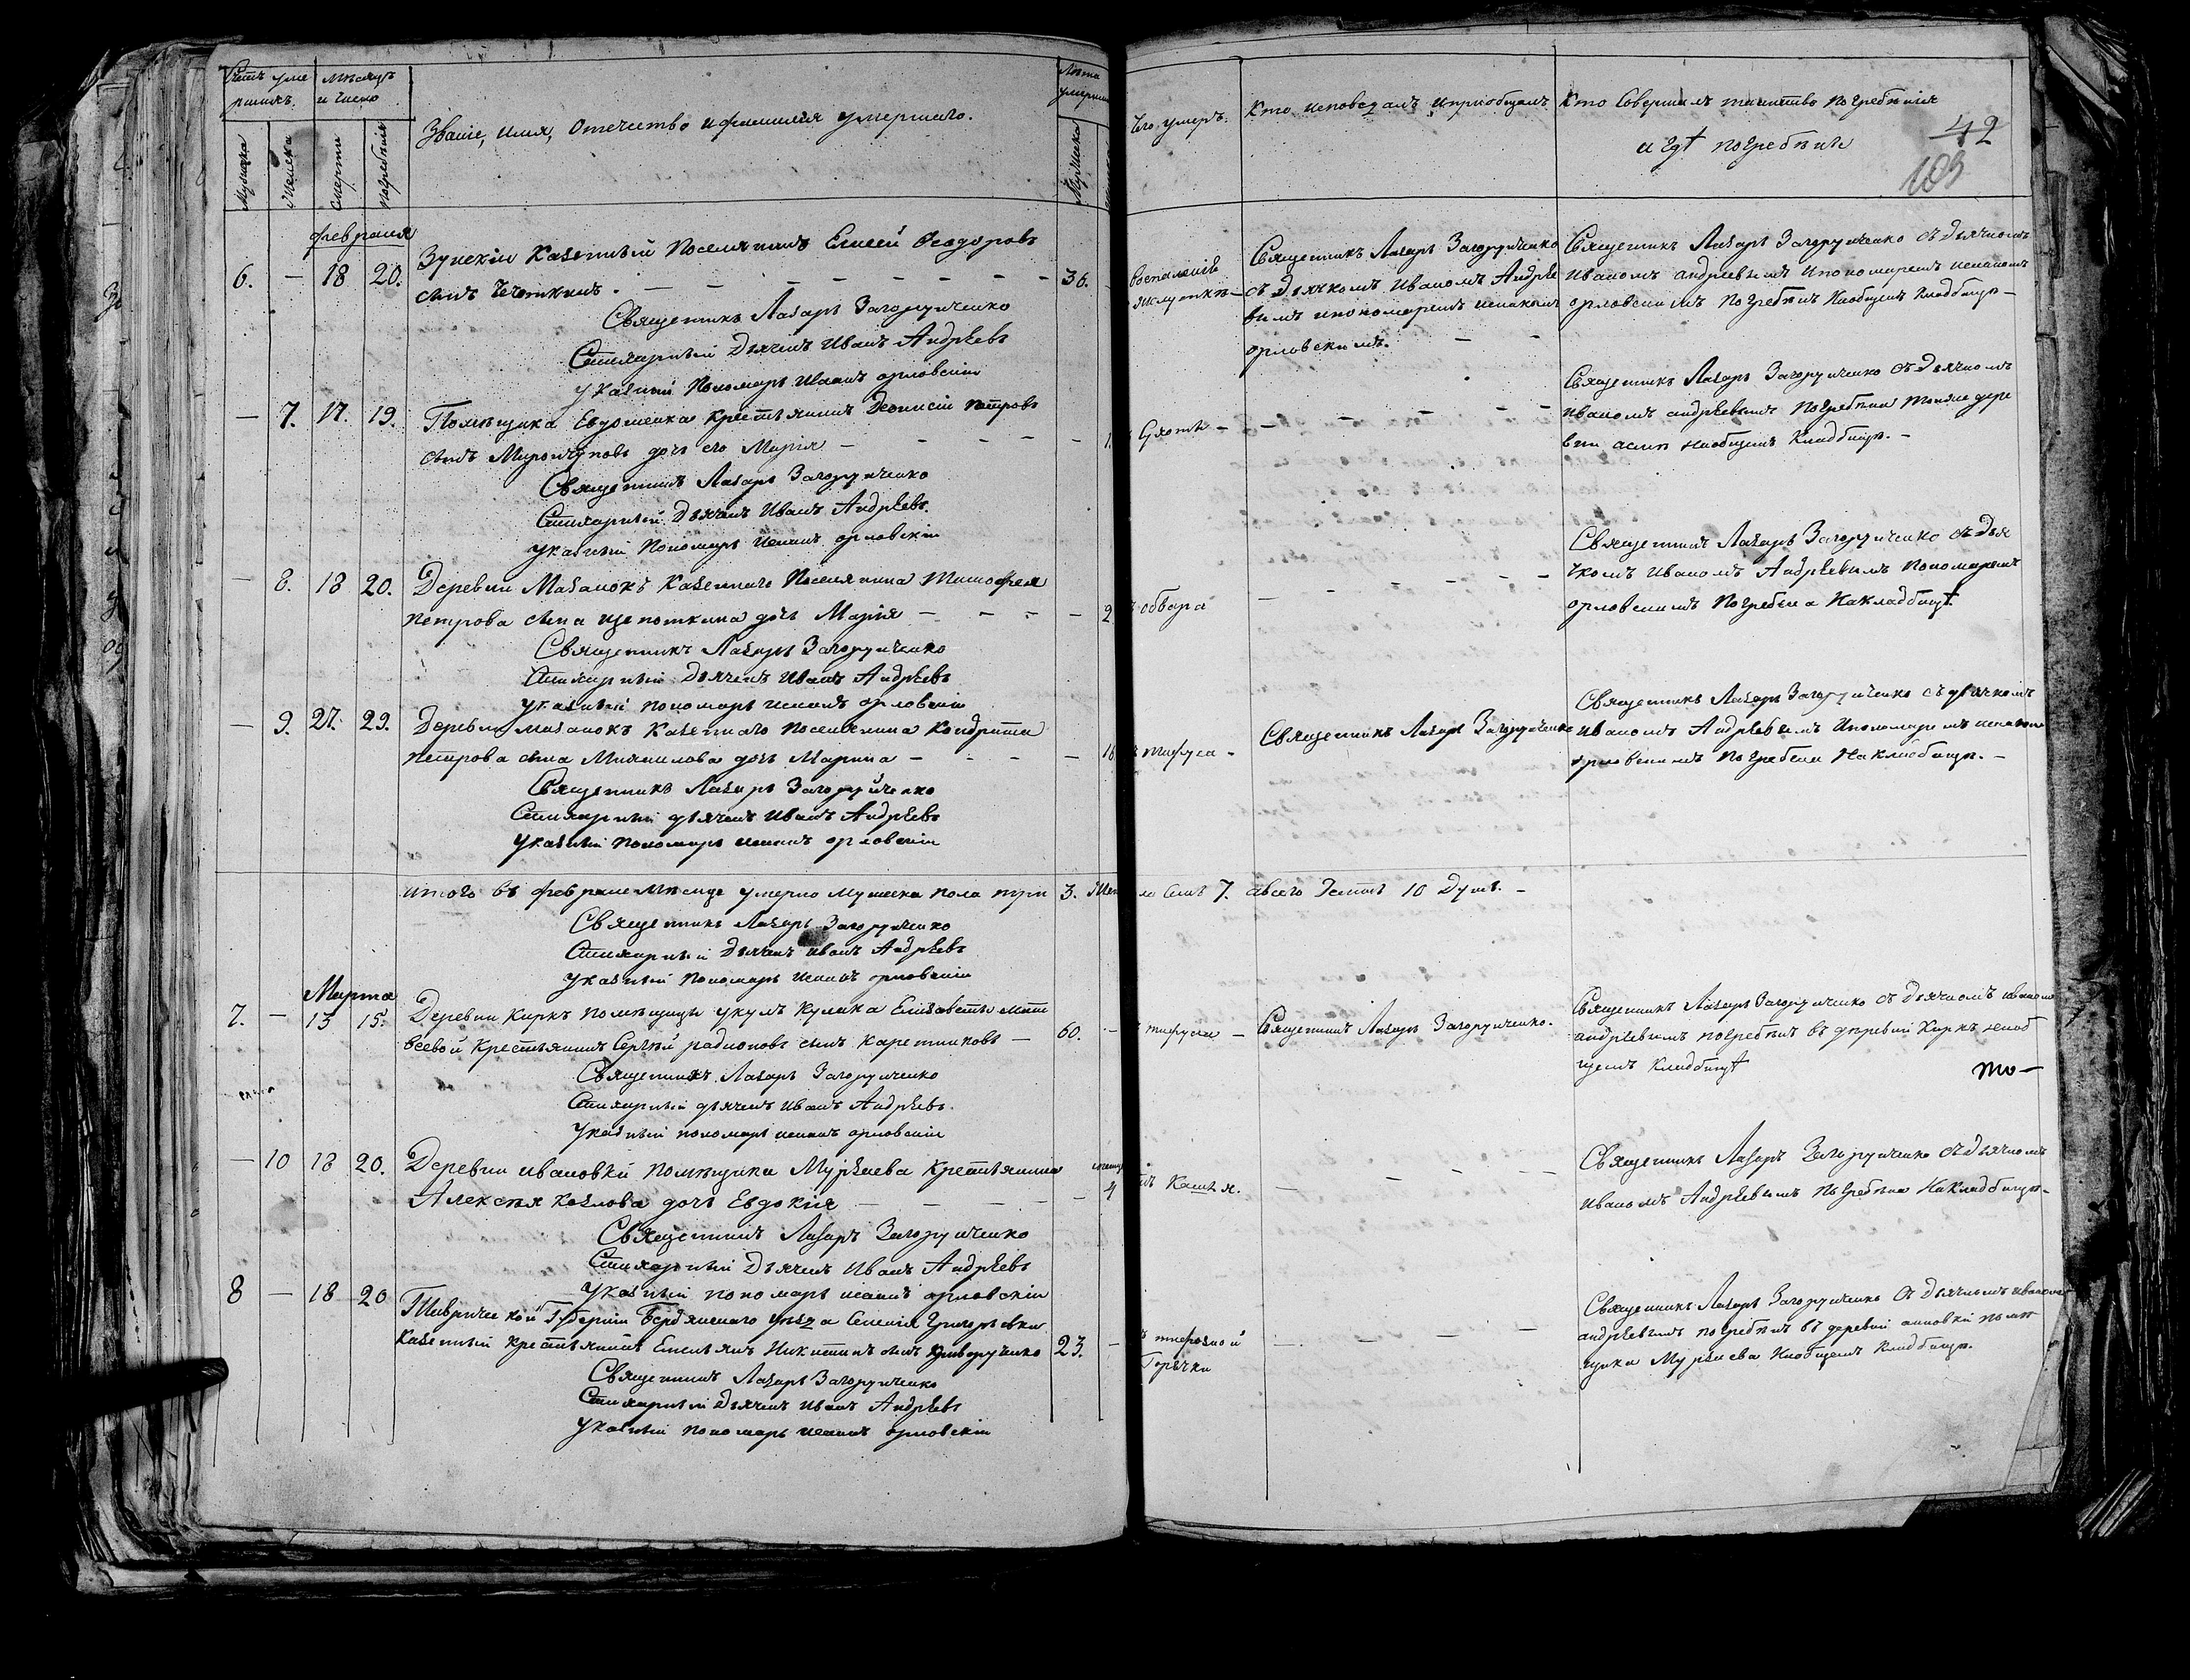 Счетъ уме
ршихъ.
Мѣсяцъ
и число
Званіе, имя, Отечество и фамилія умершаго.
Лѣта
умершаго
Мужска
Женска
Смерти
Погребенія
Мужска
чего умеръ.
Кто исповедалъ и приобщалъ
Кто Совершалъ таинство погребенія
и гдѣ погребены
42
103
февраля
6. — 18 20. Зуйскій Казенный Поселянинъ Елисей Феодоровъ
сынъ Чечоткинъ. — 36.
Священникъ Лазарь Загоруйченко
Стихарный Дьячекъ Иванъ Андрѣевъ
Указный Пономарь орловскій
воспаленіе
Священникъ Лазарь Загоруйченко
съ Дьячкомъ Иваномъ Андрѣе
вымъ и пономаремъ
орловскимъ.
Священникъ Лазарь Загоруйченко съ дьячкомъ
Иваномъ андрѣевымъ и пономаремъ
орловскимъ погребенъ на общемъ кладбищѣ —
— 7. 17. 19. Помѣщика крестьянинъ Деонисій петровъ
сынъ дочь его Марія —
Священникъ Лазарь Загоруйченко
Стихарный Дьячекъ Иванъ Андрѣевъ.
Указный Пономарь орловскій
Священникъ Лазарь Загоруйченко съ Дьячкомъ
иваномъ андрѣевымъ погребена дере
вни на общемъ кладбищѣ. —
— 8. 18 20. Деревни Мазанокъ Казеннаго Поселянина Тимофея
петрова сына щепоткина дочь Марія — 2
Священникъ Лазарь Загоруйченко
Стихарный Дьячекъ Иванъ Андрѣевъ
Указный пономарь орловскій
обвара
Священникъ Лазарь Загоруйченко съ Дья
чкомъ Иваномъ Андрѣевымъ пономаремъ
орловскимъ погребена на кладбищѣ.
— 9. 27. 29. Деревни мазанокъ Казеннаго поселянина Кондрата
петрова сына дочь Марина —
Священникъ Лазарь Загоруйченко
Стихарный дьячекъ Иванъ Андрѣевъ
Указный пономарь орловскій
тифуса —
Священникъ Лазарь Загоруйченко
Священникъ Лазарь Загоруйченко съ дьячкомъ
иваномъ Андрѣевымъ и пономаремъ
орловскимъ погребена на кладбищѣ. —
итого въ февралѣ мѣсяце умерло мужска пола три 3.
7. а всего 10 душъ. —
Священникъ Лазарь Загоруйченко
Стихарный Дьячекъ иванъ Андрѣевъ
Указный пономарь орловскій
Марта
7. — 13 15. Деревни Киркъ помѣщицы Кулика Елизаветы мат
веевой Крестьянинъ Сергѣй радионовъ сынъ Каретниковъ — 60.
Священникъ Лазарь Загоруйченко
Стихарный дьячекъ иванъ Андрѣевъ.
Указный пономарь орловскій
тифуса —
Священникъ Лазарь Загоруйченко.
Священникъ Лазарь Загоруйченко съ дьячкомъ иваномъ
андрѣевымъ погребенъ въ деревни Киркъ на об
щемъ кладбищѣ
то —
— 10 18 20. Деревни ивановки помѣщика Мурзаева крестьянина
Алексѣя козлова дочь Евдокія — 4
Священникъ Лазарь Загоруйченко
Стихарный Дьячекъ Иванъ Андрѣевъ
Указный пономарь орловскій
кашля.
Священникъ Лазарь Загоруйченко съ дьячкомъ
иваномъ Андрѣевымъ погребена на кладбищѣ.
8 — 18 20 Таврической Губерніи Бердянскаго уезда Григорьевки
казенный крестьянинъ Емельянъ Никитинъ сынъ Криворученко 23.
Священникъ Лазарь Загоруйченко
Стихарный Дьячекъ Иванъ Андрѣевъ
Указный пономарь орловскій
Горячки
Священникъ Лазарь Загоруйченко съ дьячкомъ иваномъ
андрѣевымъ погребенъ въ деревни помѣ
щика Мурзаева на общемъ кладбищѣ.